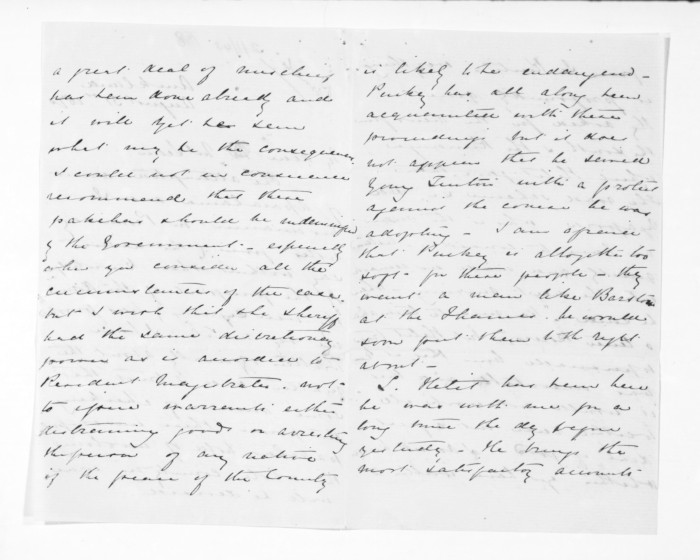 a great deal of mischief
has been done already and
it will yet be seen
what may be the consequence
I could not in conscience
recommend that these
pakehas should be indemnified
by the Government - especially
when you consider all the
circumstances of the case.
but I wish that the Sheriff
had the same discretionary
power as is accorded to
Resident Magistrates. not
to issue warrants either
distraining goods or arresting
the person of any native
if the peace of the County
is likely to be endangered -
Puckey has all along been
acquainted with these
proceedings but it does
not appear that he served
Young with a protest
against the course he was
adopting - I am afraid
that Puckey is altogether too
soft - for these people - they
want a man like Barstow
at the Thames. he would
soon put them to the right
about -
L. Hetit has been here
he was with me for a
long time the day before
yesterday - He brings the
most satisfactory accounts